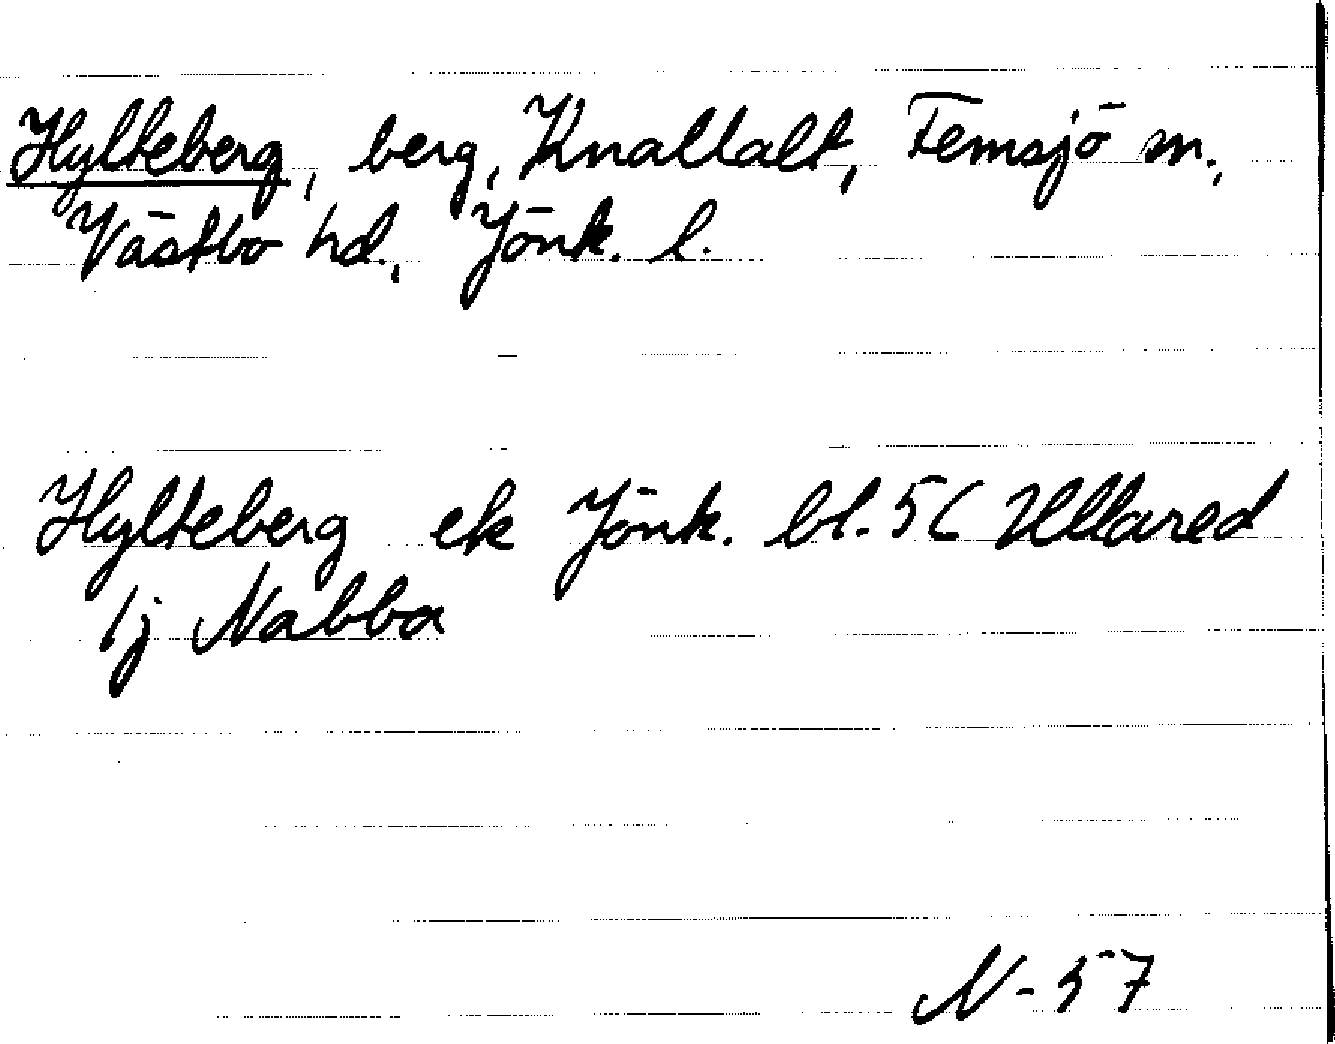 Hylteberg, berg, Knallalt, Femsjö sn.,
Västbo hd., Jönk. l.
Hylteberg ek Jönk. bl. 56 Ullared
1j Nabba
N-57